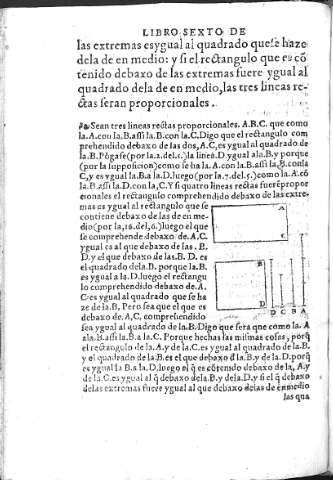 LIBRO SEXTO DE
las extremas es ygual al quadrado que se haze
dela de en medio: y si el rectangulo que es cõ
tenido debaxo de las extremas fuere ygual al
quadrado dela de en medio, las tres lineas re-
ctas seran proporcionales.
Sean tres lineas rectas proporcionales. A.B.C. que como
la.A. con la.B. assi la.B. con la.C. Digo que el rectangulo com
prehendido debaxo de las dos, A.C, es ygual al quadrado de
la.B. Põgase (por la.2. del.1.) la linea.D. ygual a la.B. y porque
(por la supposicion) como se ha la.A. con la.B. assi la.B. con la
C, y es ygual la.B. a la.D. luego (por la.7. del.5.) como la.A. cõ
la.B. assi la.D. con la, C. Y si quatro lineas rectas fuerẽ propor
cionales el rectangulo comprehendido debaxo de las extre-
mas es ygual al rectangulo que se
contiene debaxo de las de en me-
dio (por la, 16. del, 6.) luego el que
se comprehende debaxo de. A.C.
ygual es al que debaxo de las. B.
D. y el que debaxo de las. B. D. es
el quadrado dela.B. porque la.B.
es ygual a la.D. luego el rectangu
lo comprehendido debaxo de. A.
C. es ygual al quadrado que se ha
ze de la. B. Pero sea que el que es
debaxo de. A, C, comprehendido
A
C
B
D
D C B A
sea ygual al quadrado de la.B. Digo que sera que como la. A
a la.B. assi la.B. a la. C. Porque hechas las mismas cosas, porq̃
el rectangulo de la.A. y de la.C. es ygual al quadrado de la.B.
y el quadrado de la.B. es el que debaxo d̃ la.B. y de la.D. porq̃
es ygual la B. a la D, luego al q̃ es cõtenido debaxo de la, A. y
de la.C. es ygual al q̃ debaxo dela.B. y dela.D. y si el q̃ debaxo
delas extremas fuere ygual al que debaxo delas de en medio
las qua